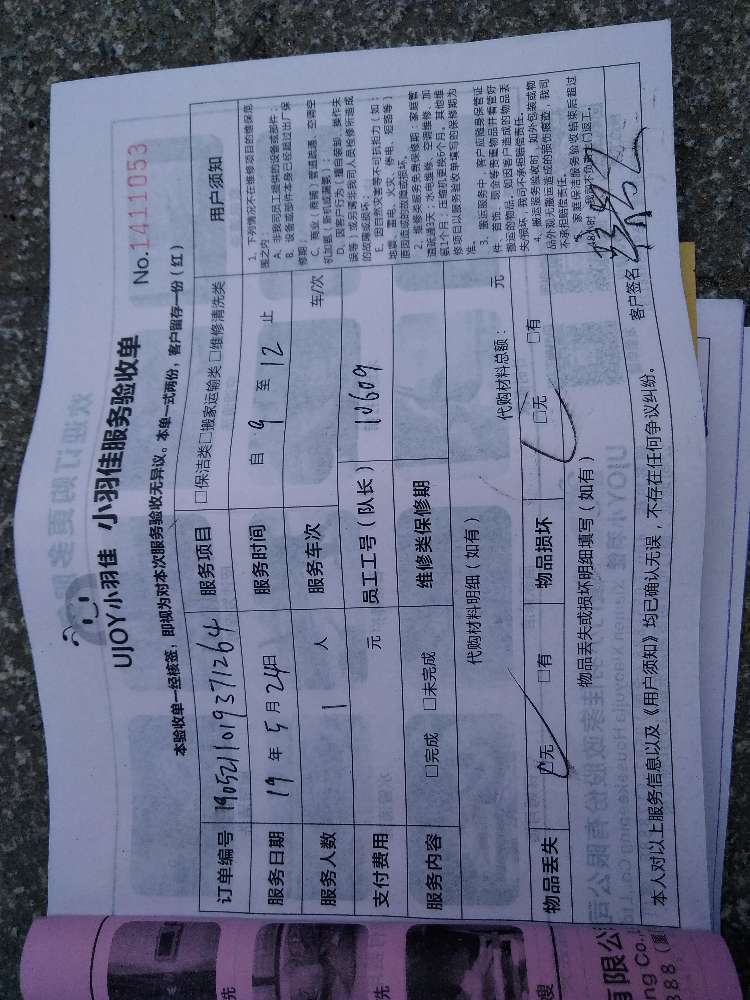 UJOY小羽佳 小羽佳服务验收单 No.1411053
本验收单一经核签，即视为对本次服务验收无异议。本单一式两份，客户留存一份（红）
订单编号 190521101937264 服务项目 □保洁类□搬家运输类□维修清洗类 用户须知
服务日期 19年5月24日 服务时间 自9至12止
服务人数 1人 服务车次 车/次
支付费用 元 员工工号（队长） 10609
服务内容 □完成 □未完成 维修类保修期
代购材料明细（如有） 代购材料总额： 元
物品丢失 □无 □有 物品损坏 □无 □有
物品丢失或损坏明细填写（如有）
1、下列情况不在维修项目的维保范
围之内：
A、非我司员工提供的设备或部件；
B、设备或部件本身已经超过出厂保
修期；
C、商业（商铺）管道疏通、空调空
机加氨（新机或漏氨）；
D、因客户行为（擅自装卸、操作失
误等）或另请非我司人员检修所造成
的故障或损坏；
E、因自然灾害等不可抗拒力（如：
地震、雷电、水灾、停电、短路等）
原因造成的故障或损坏。
2、维修类服务免费保修期：家庭管
道疏通3天；水电维修、空调维修、加
氨1个月；压缩机更换6个月。其他维
修项目以服务验收单填写的保修期为
准。
3、搬运服务中，客户应随身保管证
件、首饰、现金等贵重物品并看管好
搬运的物品，如因客户造成的物品丢
失/损坏，我司不承担赔偿责任。
4、搬运服务验收时，如外包装或物
品外观无搬运造成的损伤痕迹，我司
不承担赔偿责任。
5、家庭保洁服务验收结束后超过
48小时，我司不负责上门返工。
本人对以上服务信息以及《用户须知》均已确认无误，不存在任何争议纠纷。 客户签名